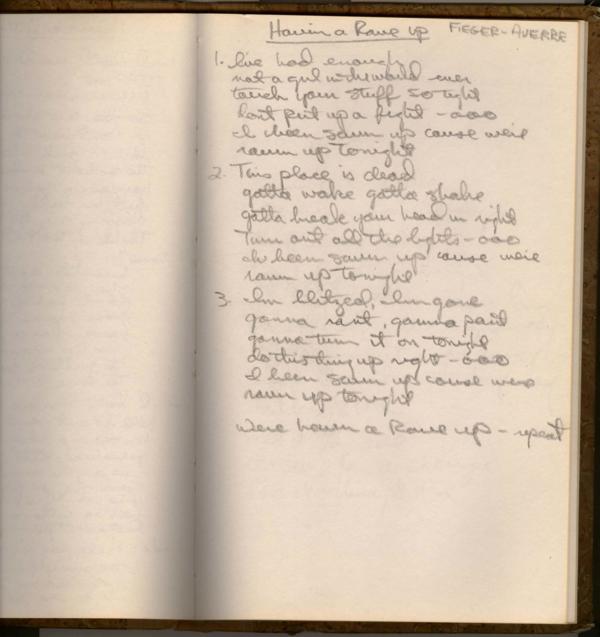 Havin a Rave up FIEGER-AVERRE
1. I've had enough
not a girl in the world ever
touch your stuff so tight
don't put up a fight - ooo
I been savin up cause we're
ravin up tonight
2. This place is dead
gotta wake gotta shake
gotta break your head in right
Turn out all the lights - ooo
I been savin up cause we're
ravin up tonight
3. I'm blitzed, I'm gone
gonna rant, gonna
gonna turn it on tonight
do this thing up right - ooo
I been savin up cause were
ravin up tonight
were havin a Rave up - repeat